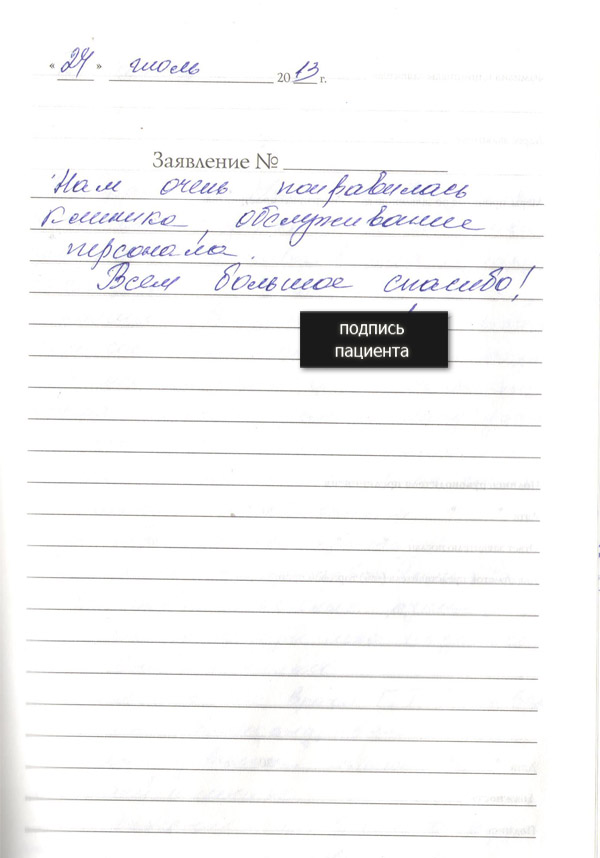 « 24 » июль 20 13 г.
Заявление №
Нам очень понравилась
клиника, обслуживание
персонала.
Всем большое спасибо!
подпись
пациента